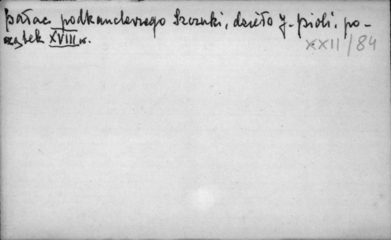 pałac podkanclerzego Szczuki, dzieło J. Pioli, po-
czątek XVIII w.
XXII/84